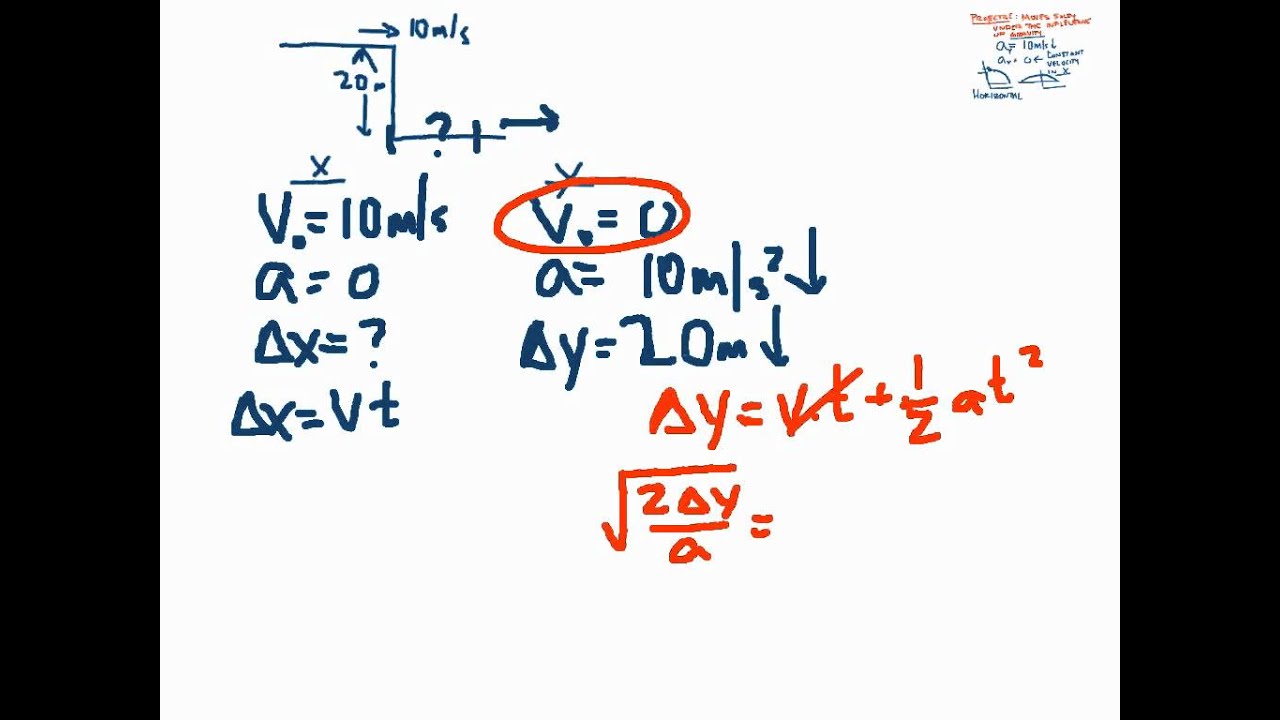 10m/s
20m
?
x
V₀=10m/s
a=0
Δx=?
Δx=vt
y
V₀=0
a=10m/s²↓
Δy=20m↓
Δy=V₀t+½at²
√(2Δy/a)=
PROJECTILE: MOVES SOLELY
UNDER THE INFLUENCE
OF GRAVITY
10m/s↓
0← CONSTANT
VELOCITY
IN X
HORIZONTAL